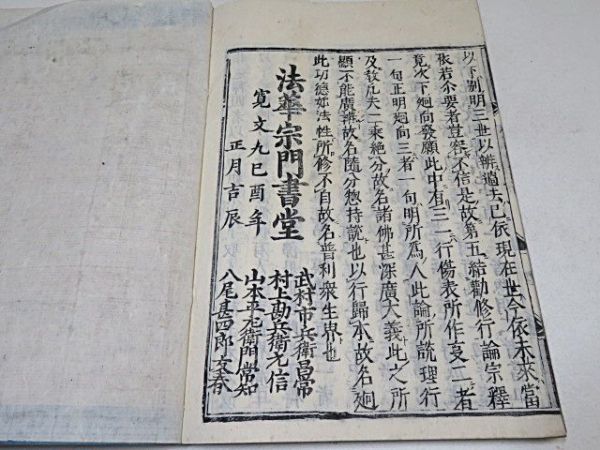 以下別明三世以辨過去已依現在世今依未來當
依若尒要者豈容不信是故第五結勸修行論宗釋
竟次下廻向發願此中有三一行偈表所作竟二者
一句正明廻向三者一句明所爲人此論所說理行
及教凡夫二乘絶分故名諸佛甚深廣大義此之所
顯不能廣辨故名隨分惣持說也以行歸本故名廻
此功德如法性所修不自故名普利衆生界也
法華宗門書堂
寛文九巳酉年
正月吉辰
武村市兵衛昌常
村上勘兵衛元信
山本平左衛門常知
八尾甚四郎友春